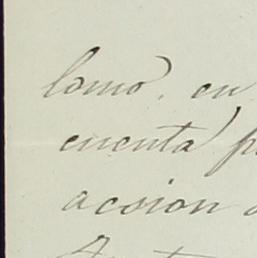 lomo, en
cuenta p
acsion